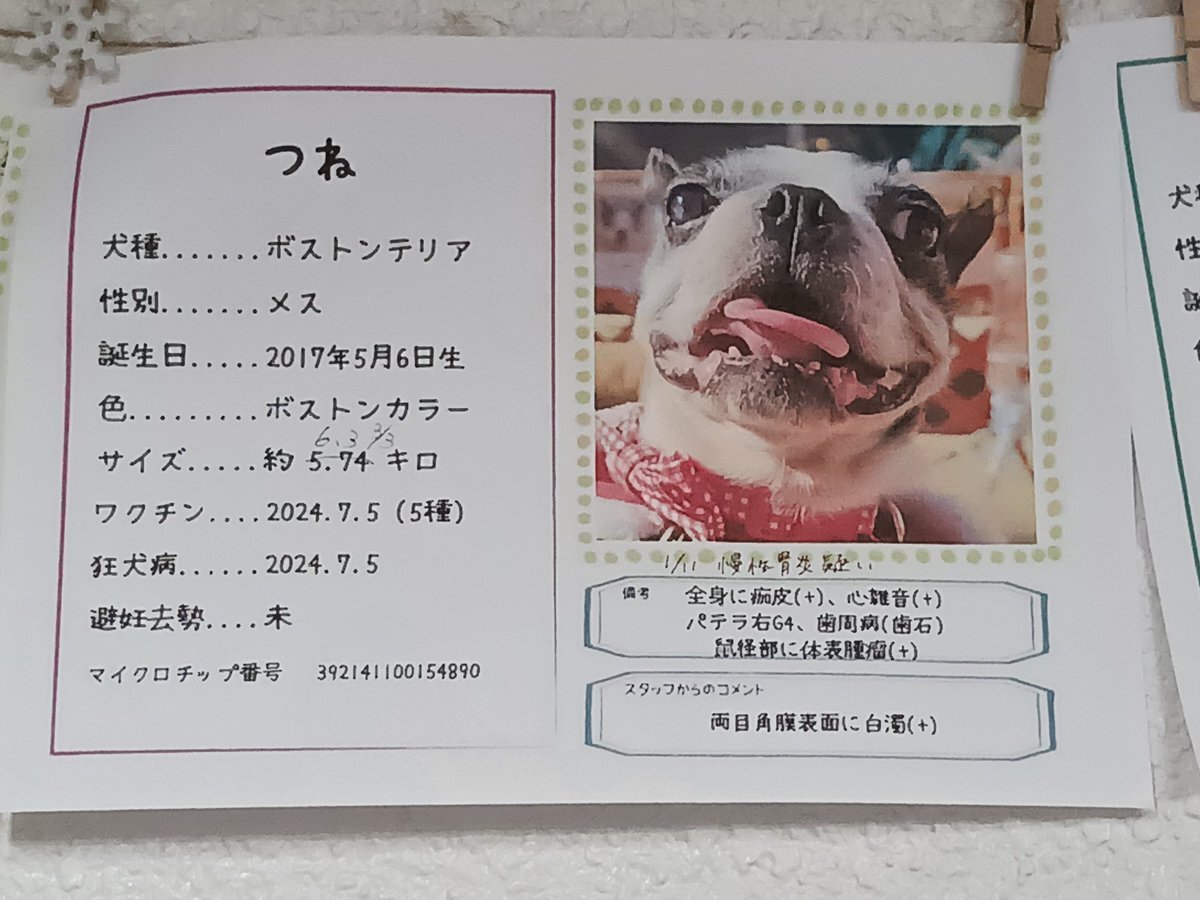 つね
犬種.......ボストンテリア
性別.......メス
誕生日.....2017年5月6日生
色.........ボストンカラー
6.3 3/3
サイズ.....約 5.74 キロ
ワクチン....2024.7.5 (5種)
狂犬病......2024.7.5
避妊去勢....未
マイクロチップ番号 392141100154890
1/11 慢性胃炎疑い
備考 全身に痂皮(+)、心雑音(+)
パテラ右G4、歯周病(歯石)
鼠径部に体表腫瘤(+)
スタッフからのコメント
両目角膜表面に白濁(+)
犬種
性
誕